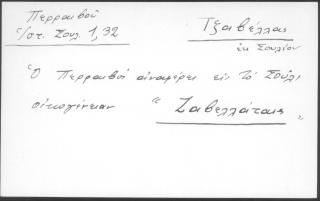 Περραιβοῦ
ἱστ. Σουλ. 1,32
Τζαβέλλας
ἐκ Σουλίου
Ὁ Περραιβός ἀναφέρει εἰς τό Σοῦλι
οἰκογένειαν "Ζαβελλάταις"